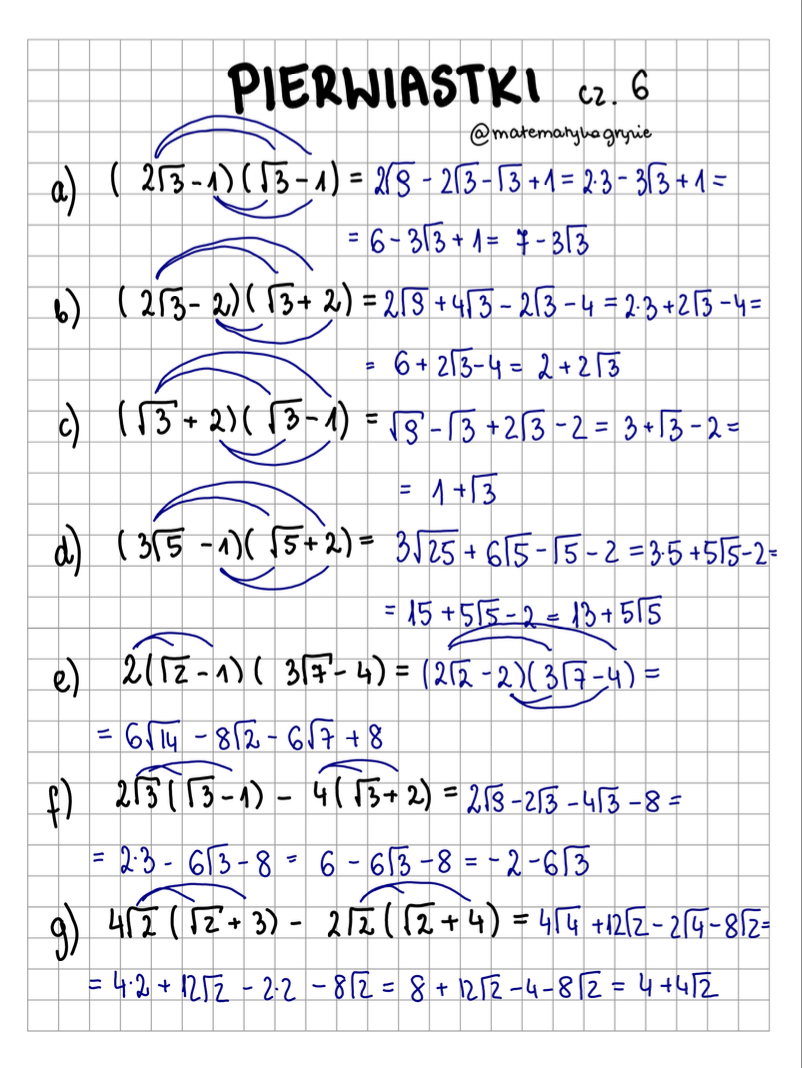 PIERWIASTKI cz. 6
@matematykagryzie
a) (2√3-1)(√3-1) = 2√9 - 2√3 - √3 + 1 = 2·3 - 3√3 + 1 =
= 6 - 3√3 + 1 = 7 - 3√3
b) (2√3-2)(√3+2) = 2√9 + 4√3 - 2√3 - 4 = 2·3 + 2√3 - 4 =
= 6 + 2√3 - 4 = 2 + 2√3
c) (√3+2)(√3-1) = √9 - √3 + 2√3 - 2 = 3 + √3 - 2 =
= 1 + √3
d) (3√5-1)(√5+2) = 3√25 + 6√5 - √5 - 2 = 3·5 + 5√5 - 2 =
= 15 + 5√5 - 2 = 13 + 5√5
e) 2(√2-1)(3√7-4) = (2√2-2)(3√7-4) =
= 6√14 - 8√2 - 6√7 + 8
f) 2√3(√3-1) - 4(√3+2) = 2√9 - 2√3 - 4√3 - 8 =
= 2·3 - 6√3 - 8 = 6 - 6√3 - 8 = -2 - 6√3
g) 4√2(√2+3) - 2√2(√2+4) = 4√4 + 12√2 - 2√4 - 8√2 =
= 4·2 + 12√2 - 2·2 - 8√2 = 8 + 12√2 - 4 - 8√2 = 4 + 4√2